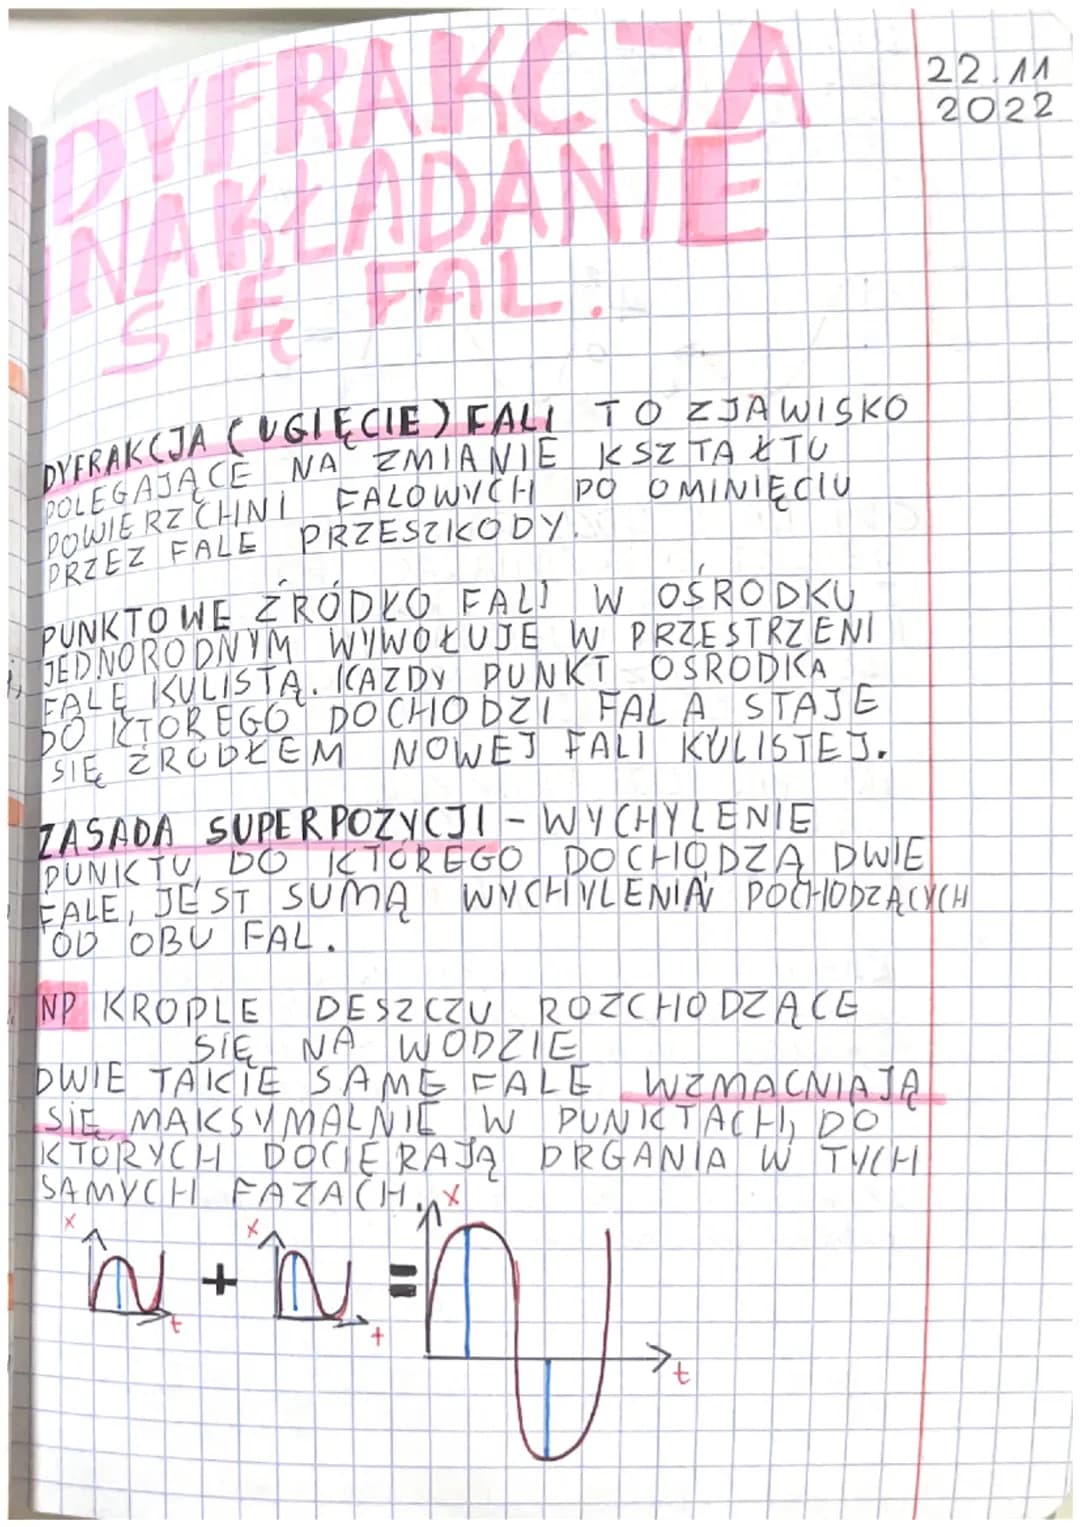 22.11
2022
DYFRAKCJA
NAKŁADANIE
SIĘ FAL.
DYFRAKCJA (UGIĘCIE) FALI TO ZJAWISKO
POLEGAJĄCE NA ZMIANIE KSZTAŁTU
POWIERZCHNI FALOWYCH PO OMINIĘCIU
PRZEZ FALE PRZESZKODY.
PUNKTOWE ŹRÓDŁO FALI W OŚRODKU
JEDNORODNYM WYWOŁUJE W PRZESTRZENI
FALĘ KULISTĄ. KAŻDY PUNKT OŚRODKA
DO KTÓREGO DOCHODZI FALA STAJE
SIĘ ŹRÓDŁEM NOWEJ FALI KULISTEJ.
ZASADA SUPERPOZYCJI - WYCHYLENIE
PUNKTU, DO KTÓREGO DOCHODZĄ DWIE
FALE, JEST SUMĄ WYCHYLENIA POCHODZĄCYCH
OD OBU FAL.
NP KROPLE DESZCZU ROZCHODZĄCE
SIĘ NA WODZIE
DWIE TAKIE SAME FALE WZMACNIAJĄ
SIĘ MAKSYMALNIE W PUNKTACH, DO
KTÓRYCH DOCIERAJĄ DRGANIA W TYCH
SAMYCH FAZACH.
x t + x t = x t